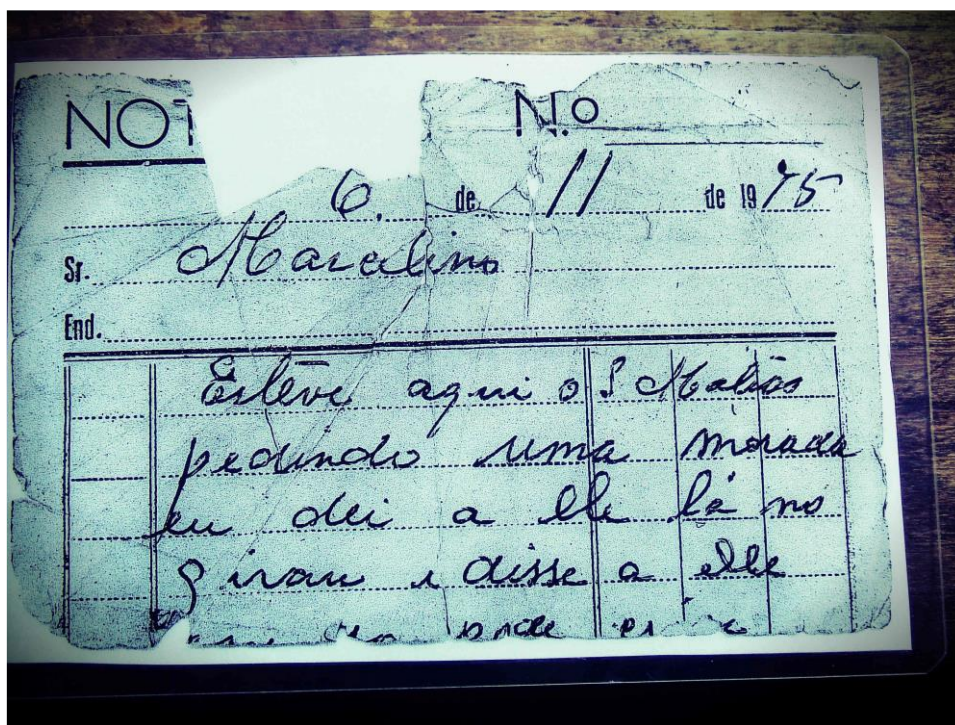 NOT N.o
6. de 11 de 1975
Sr. Marcelino
End.
Estève aqui o S Matias
pedindo uma morada
eu dei a elle lá no
giran e disse a elle
pode